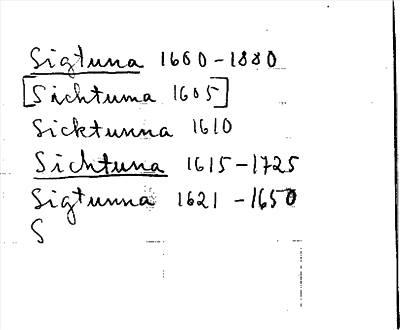 Sigtuna 1600-1880
[Sichtuma 1605]
Sicktunna 1610
Sichtuna 1615-1725
Sigtunna 1621-1650
S